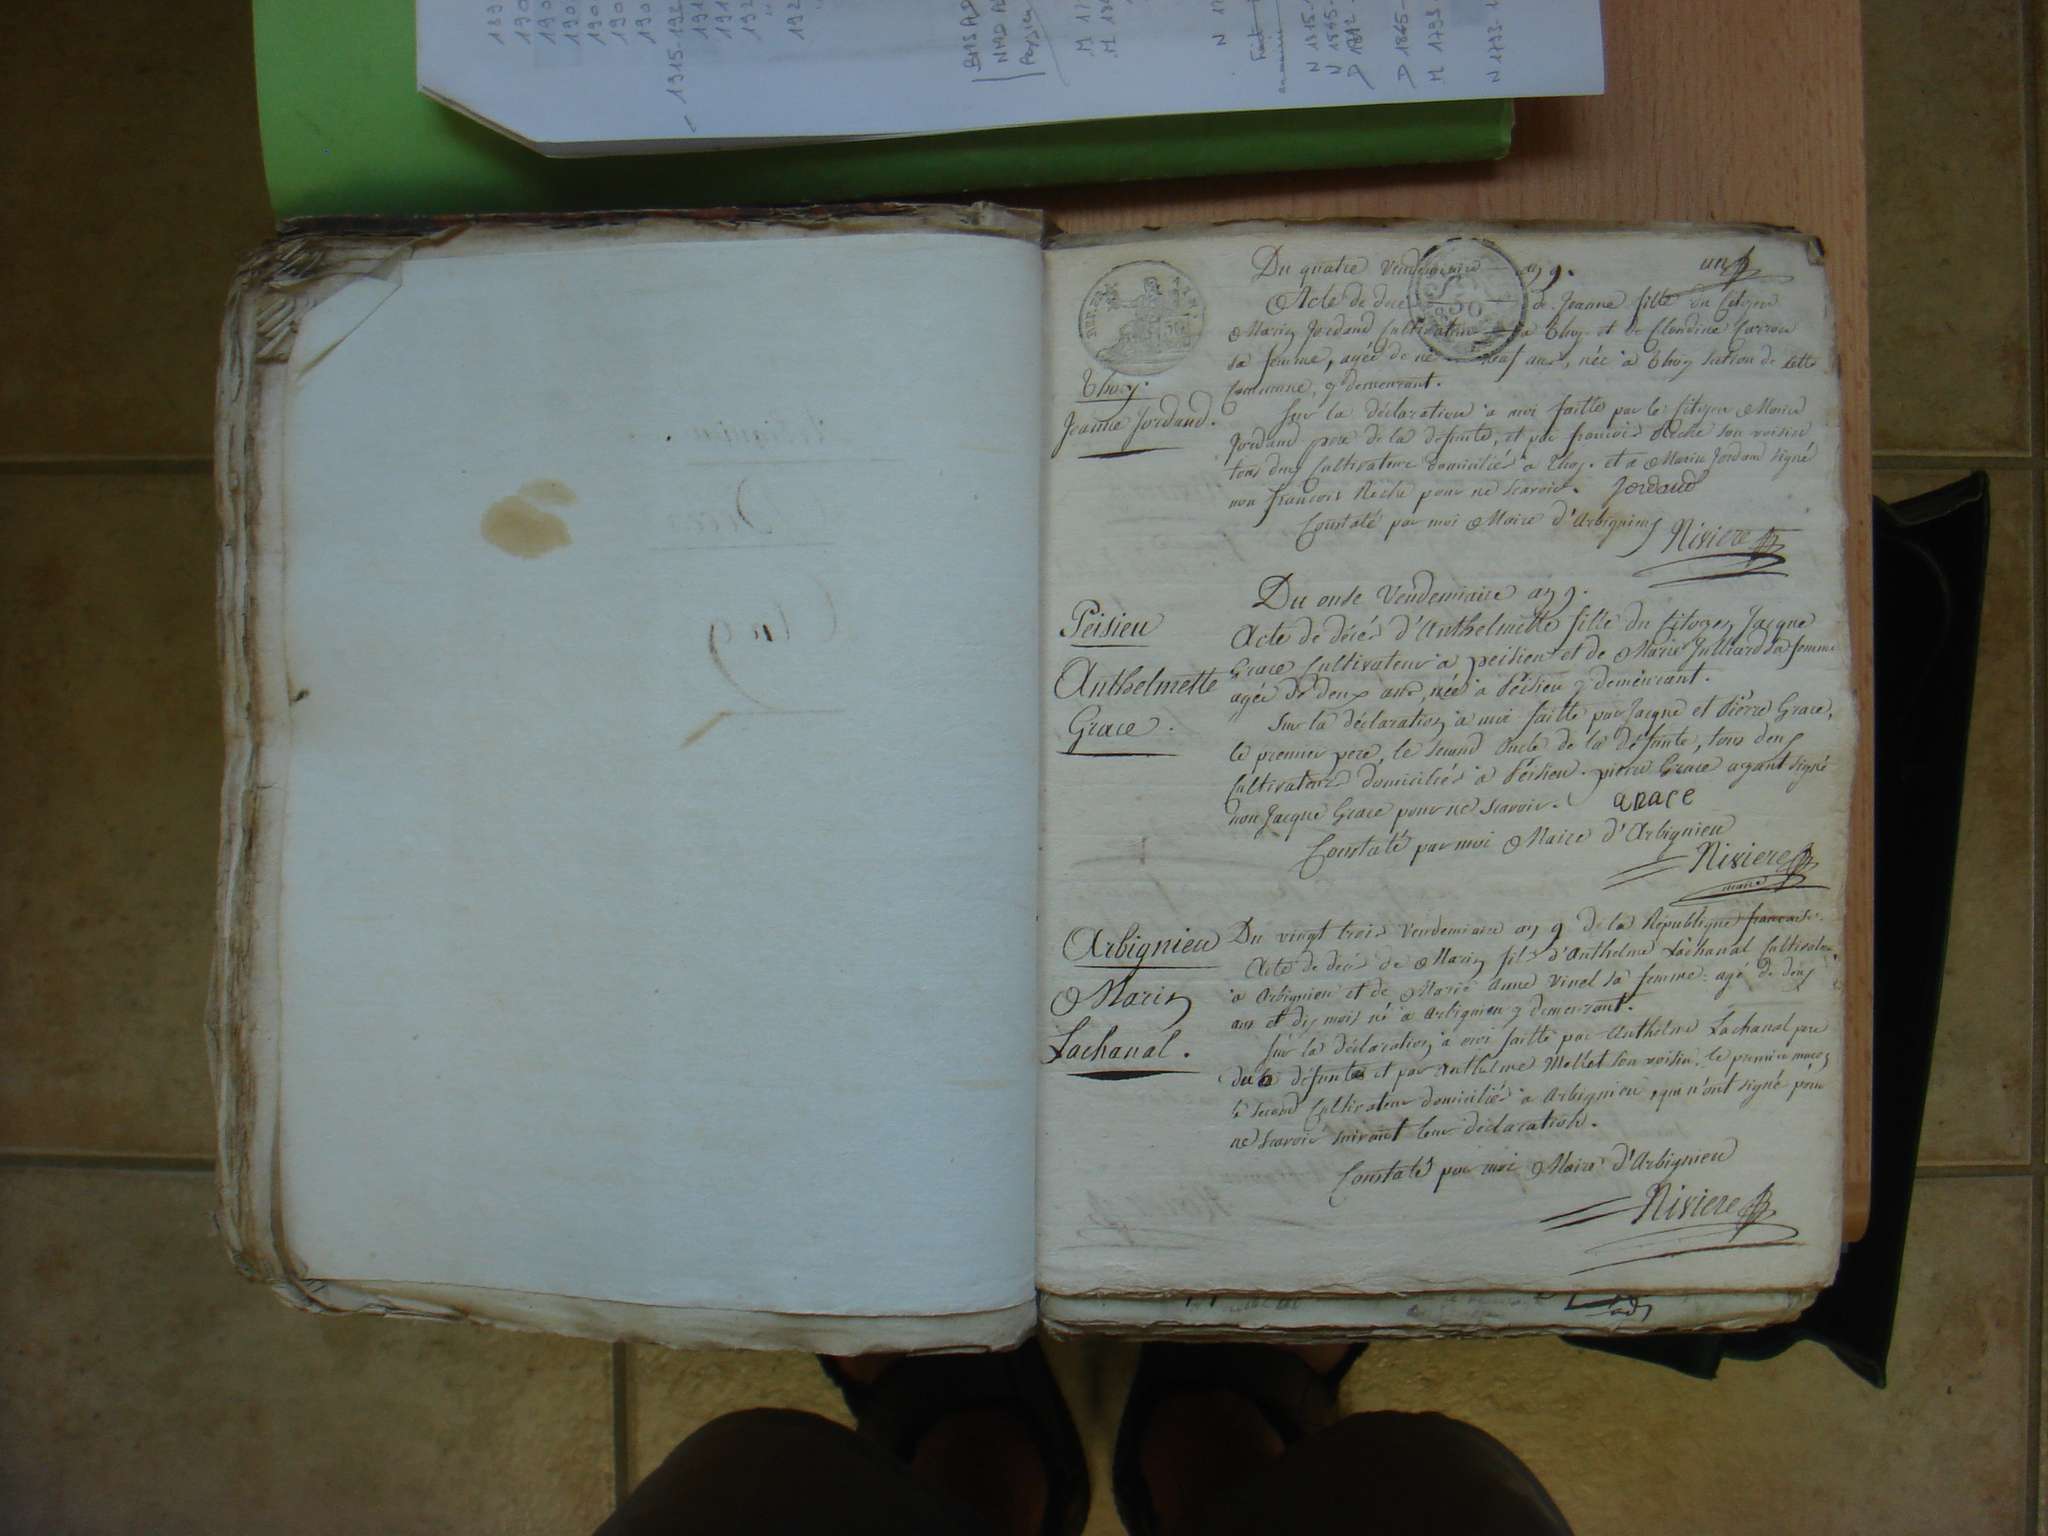 189
190
190
190
190
190
190
1915-192
191
191
192
192
BMS AD
NMD A
Peysieu
M 17
M 18
N 17
N 1815-
N 1845-
D 1812-
D 1865-
M 1793-
N 1793-1
un
Du quatre Vendemiaire an 9.
Acte de de de Jeanne fille du Citoyen
Marin Jordand Cultivateur a Thoy. et de Claudine
sa femme, agée de neuf ans, née a Thoy section de cette
Commune, y demeurant.
Thoy.
Jeanne Jordand.
Sur la déclaration a moi faitte par le Citoyen Marin
Jordand pere de la defunte, et par francois Reche son voisin
tous deux Cultivateurs domiciliés a Thoy. et a Marin Jordand signé
non francois Reche pour ne scavoir. Jordand
Constaté par moi Maire d'Arbignieu Riviere
Du onse Vendemiaire an 9.
Peisieu
Anthelmette
Grace.
Acte de décés d'Anthelmette fille du Citoyen Jacque
Grace Cultivateur a peisieu et de Marie Julliard sa femme
agée de deux ans, née a Peisieu y demeurant.
Sur la déclaration a moi faitte par Jacque et Pierre Grace,
le premier pere, le second oncle de la défunte, tous deux
Cultivateurs domiciliés a Peisieu. pierre Grace ayant signé
non Jacque Grace pour ne scavoir. GRACE
Constaté par moi Maire d'Arbignieu
Riviere
maire
Arbignieu
Marin
Lachanal.
Du vingt trois Vendemiaire an 9 de la République francaise.
Acte de décés de Marin fils d'Anthelme Lachanal Cultivateur
a Arbignieu et de Marie Anne Vinet sa femme. agé de deux
ans et dix mois né a Arbignieu y demeurant.
Sur la déclaration a moi faitte par Anthelme Lachanal pere
du défunt et par Anthelme Mollet son voisin. le premier maçon
le second Cultivateur domiciliés a Arbignieu, qui n'ont signé pour
ne scavoir suivant leur déclaration.
Constaté par moi Maire d'Arbignieu
Riviere